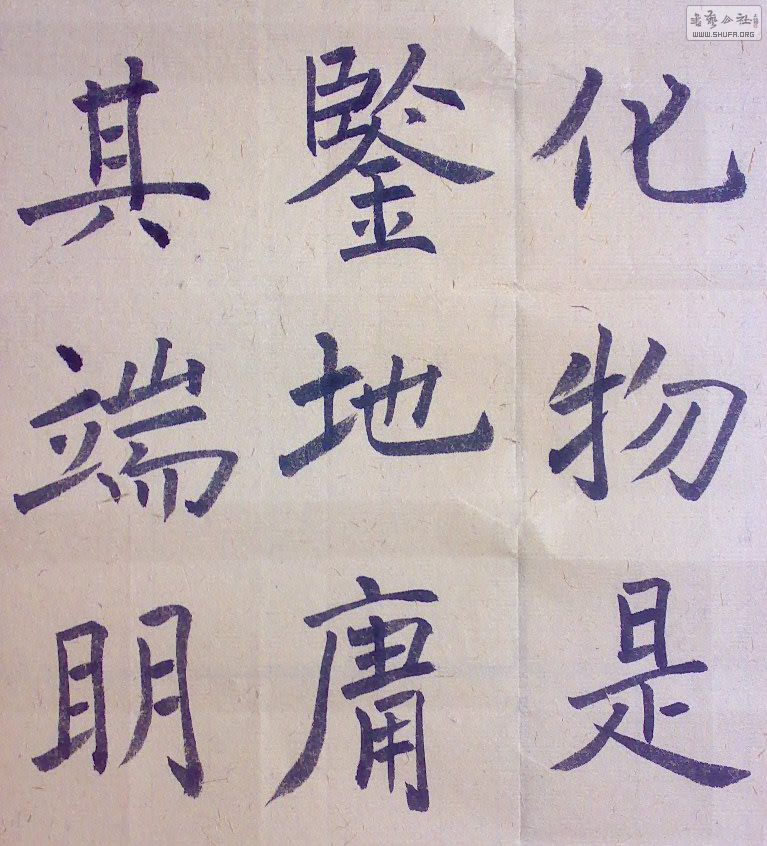 化物是
鑒地庸
其端明
書藝公社
WWW.SHUFA.ORG